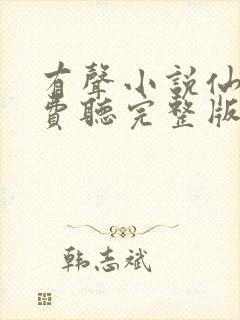 有聲小説仙
費聽完整版
韩志斌